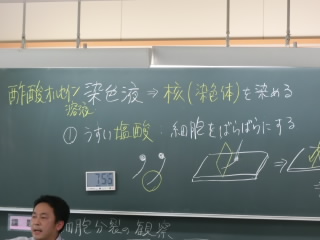 酢酸オルセイン染色液 ⇒ 核(染色体)を染める
溶液
① うすい塩酸:細胞をばらばらにする
755
細胞分裂の観察